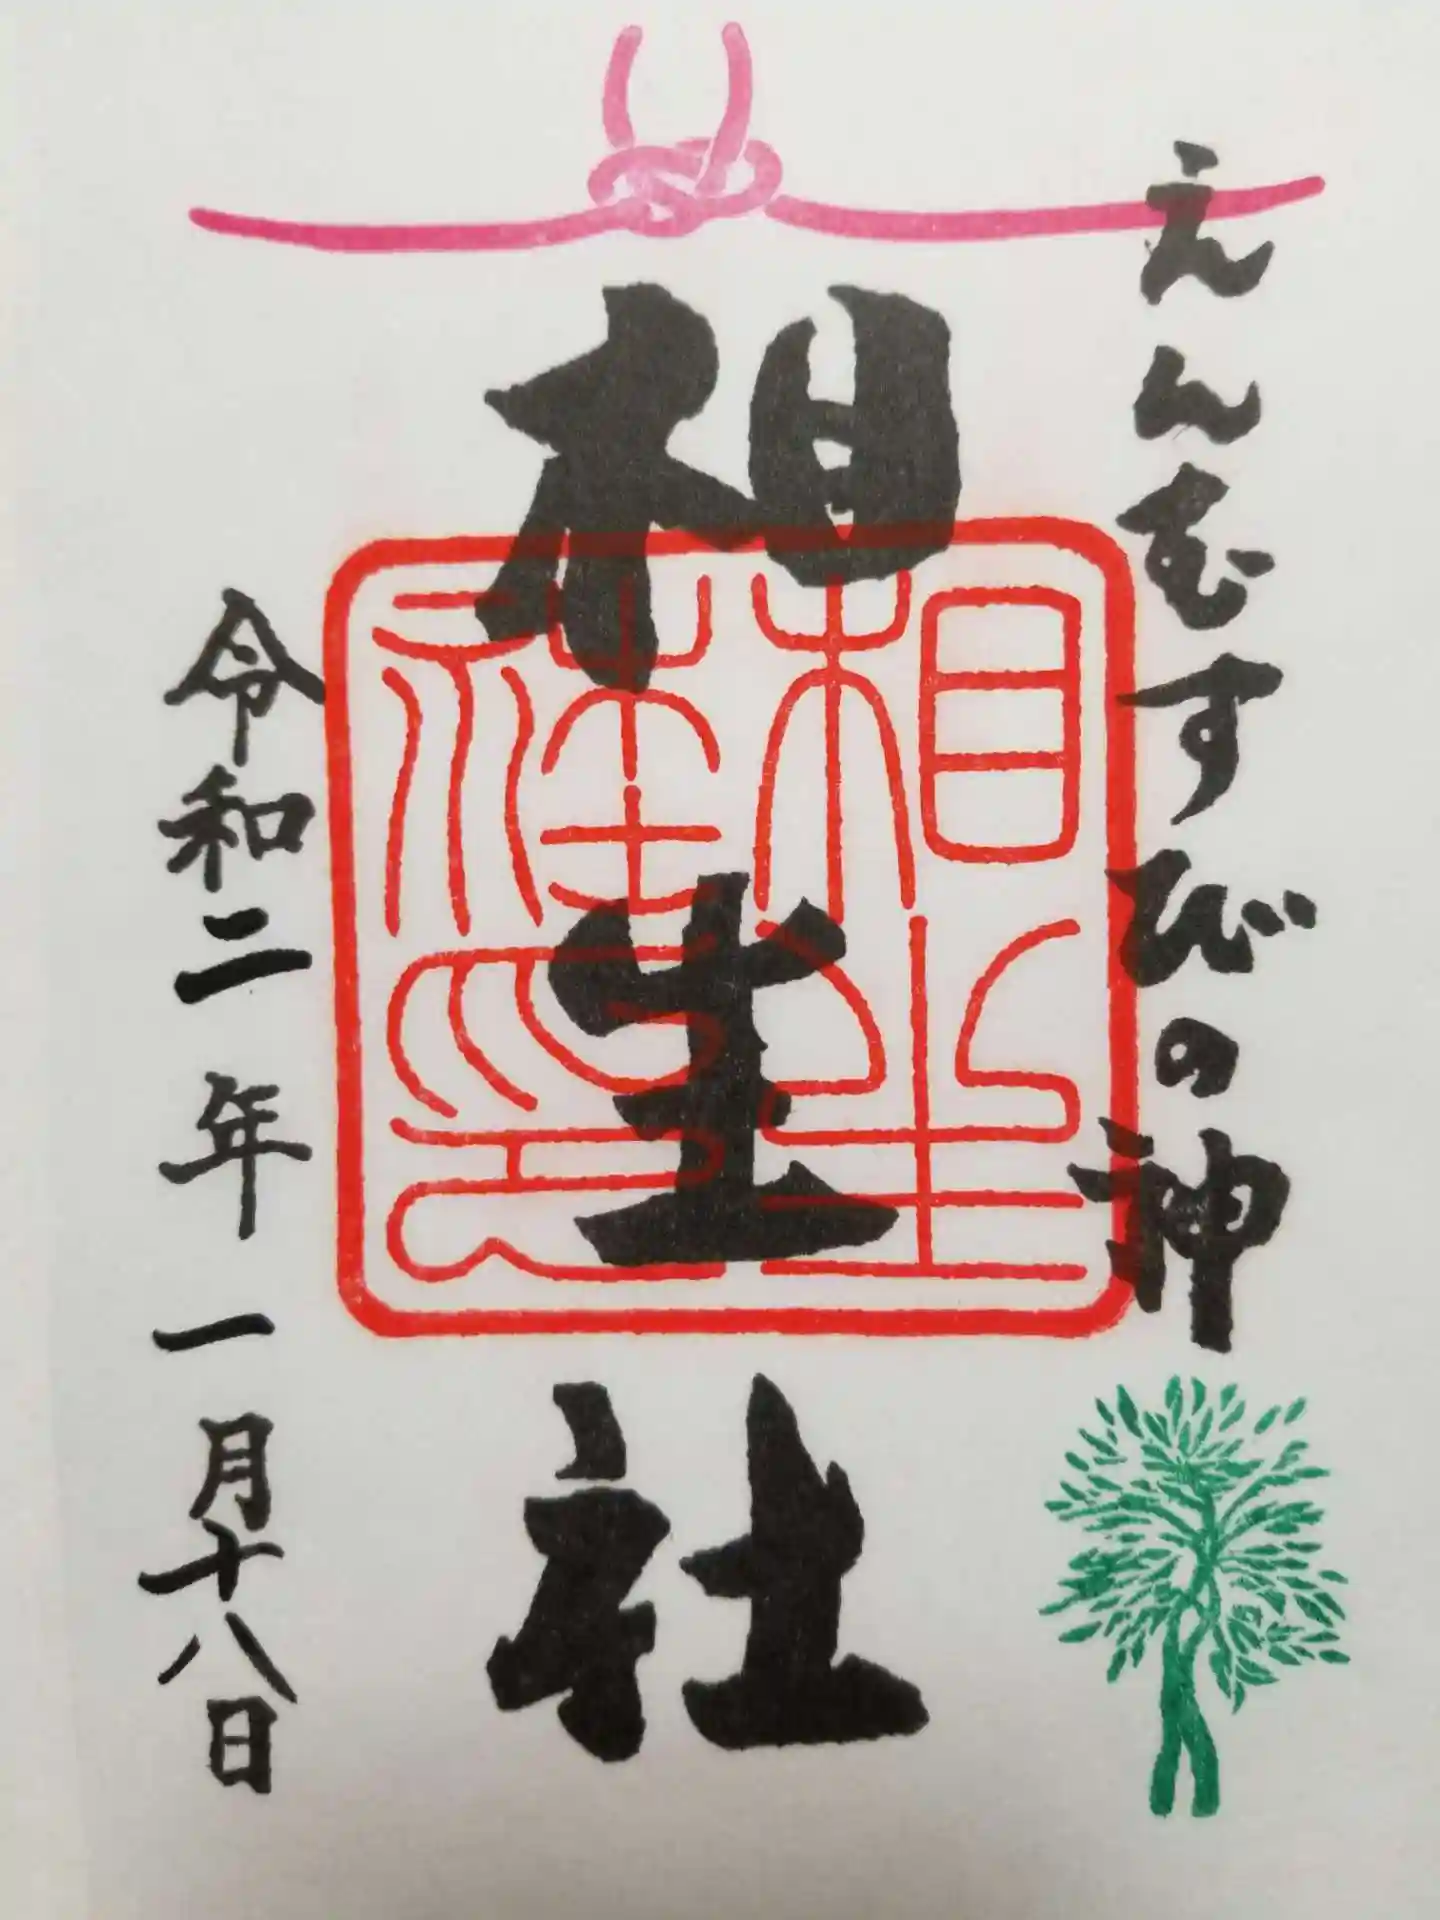 えんむすびの神
相生社
令和二年一月十八日